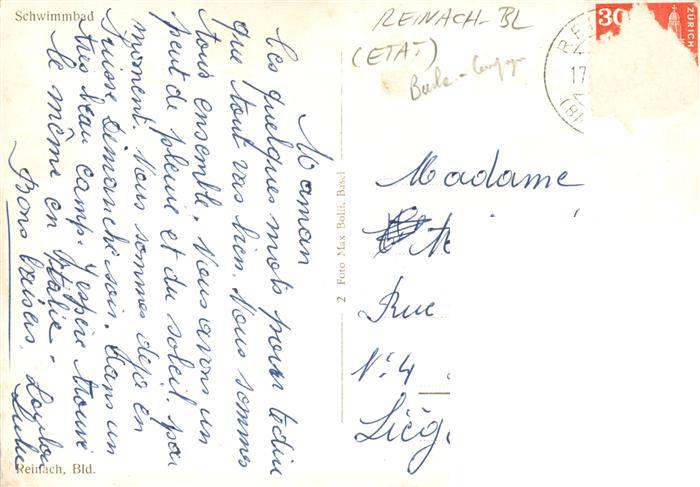 Schwimmbad
Maman
Ces quelques mots pour te dire
que tout vas bien. Nous sommes
tous ensemble. Nous avons un
peut de pleuie et du soleil par
moment. Nous sommes deja en
Suisse Dimanche soir. Dans un
tres beau camp. J'espère trouvé
le même en Italie.
Bons baisers.
Reinach, Bld.
2 Foto Max Bolli, Basel
REINACH-BL
(ETAT)
30
ZÜRICH
17
Madame
Rue
N° 4
Liég